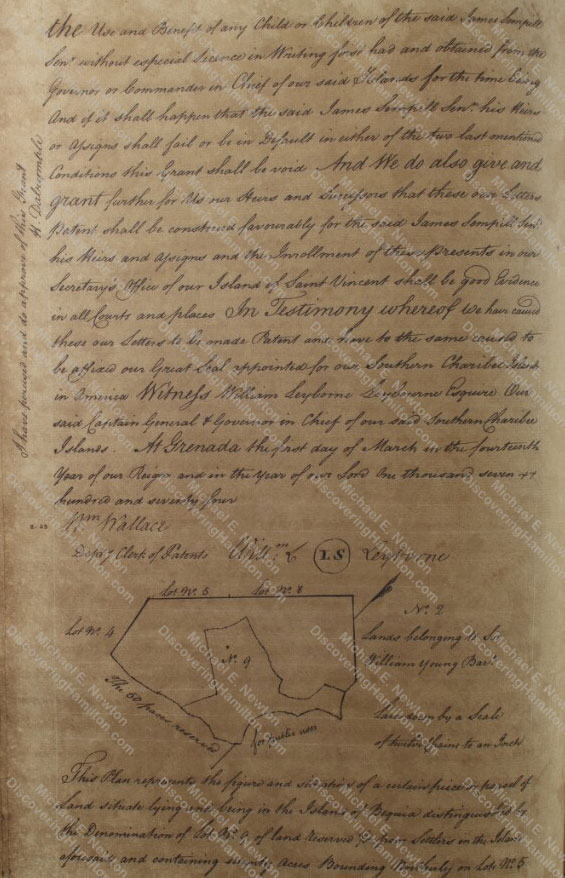 the Use and Benefit of any Child or Children of the said James Sempill
Senr. without especial Licence in Writing first had and obtained from the
Governor or Commander in Chief of our said Islands for the time being
And if it shall happen that the said James Sempill Senr. his Heirs
or Assigns shall fail or be in Default in either of the two last mentioned
Conditions this Grant shall be void And We do also give and
grant further for Us our Heirs and Successors that these our Letters
Patent shall be construed favourably for the said James Sempill Senr.
his Heirs and Assigns and the Inrollment of these Presents in our
Secretary's Office of our Island of Saint Vincent shall be good Evidence
in all Courts and places In Testimony whereof We have caused
these our Letters to be made Patent and have to the same caused to
be affixed our Great Seal appointed for our Southern Charibee Islands
in America Witness William Leyborne Leyborne Esquire Our
said Captain General & Governor in Chief of our said Southern Charibee
Islands. At Grenada the first day of March in the fourteenth
Year of our Reign and in the Year of our Lord One thousand seven
hundred and seventy four
I have perused and do approve of this Grant
Wm Wallace
Depy Clerk of Patents
Willm. L
L S
Leyborne
Lot No. 5
Lot No. 8
Lot No. 4
No. 9
No. 2
Lands belonging to Sir
William Young Bart.
The 60 paces reserved
for public uses
Laid down by a Scale
of twelve Chains to an Inch
This Plan represents the figure and situation of a certain piece or parcel of
Land situate lying and being in the Island of Bequia distinguished by
the Denomination of Lot No. 9 of land reserved for poor Settlers in the Island
aforesaid and containing seventy Acres Bounding Northerly on Lots No. 5
Michael E. Newton
DiscoveringHamilton.com